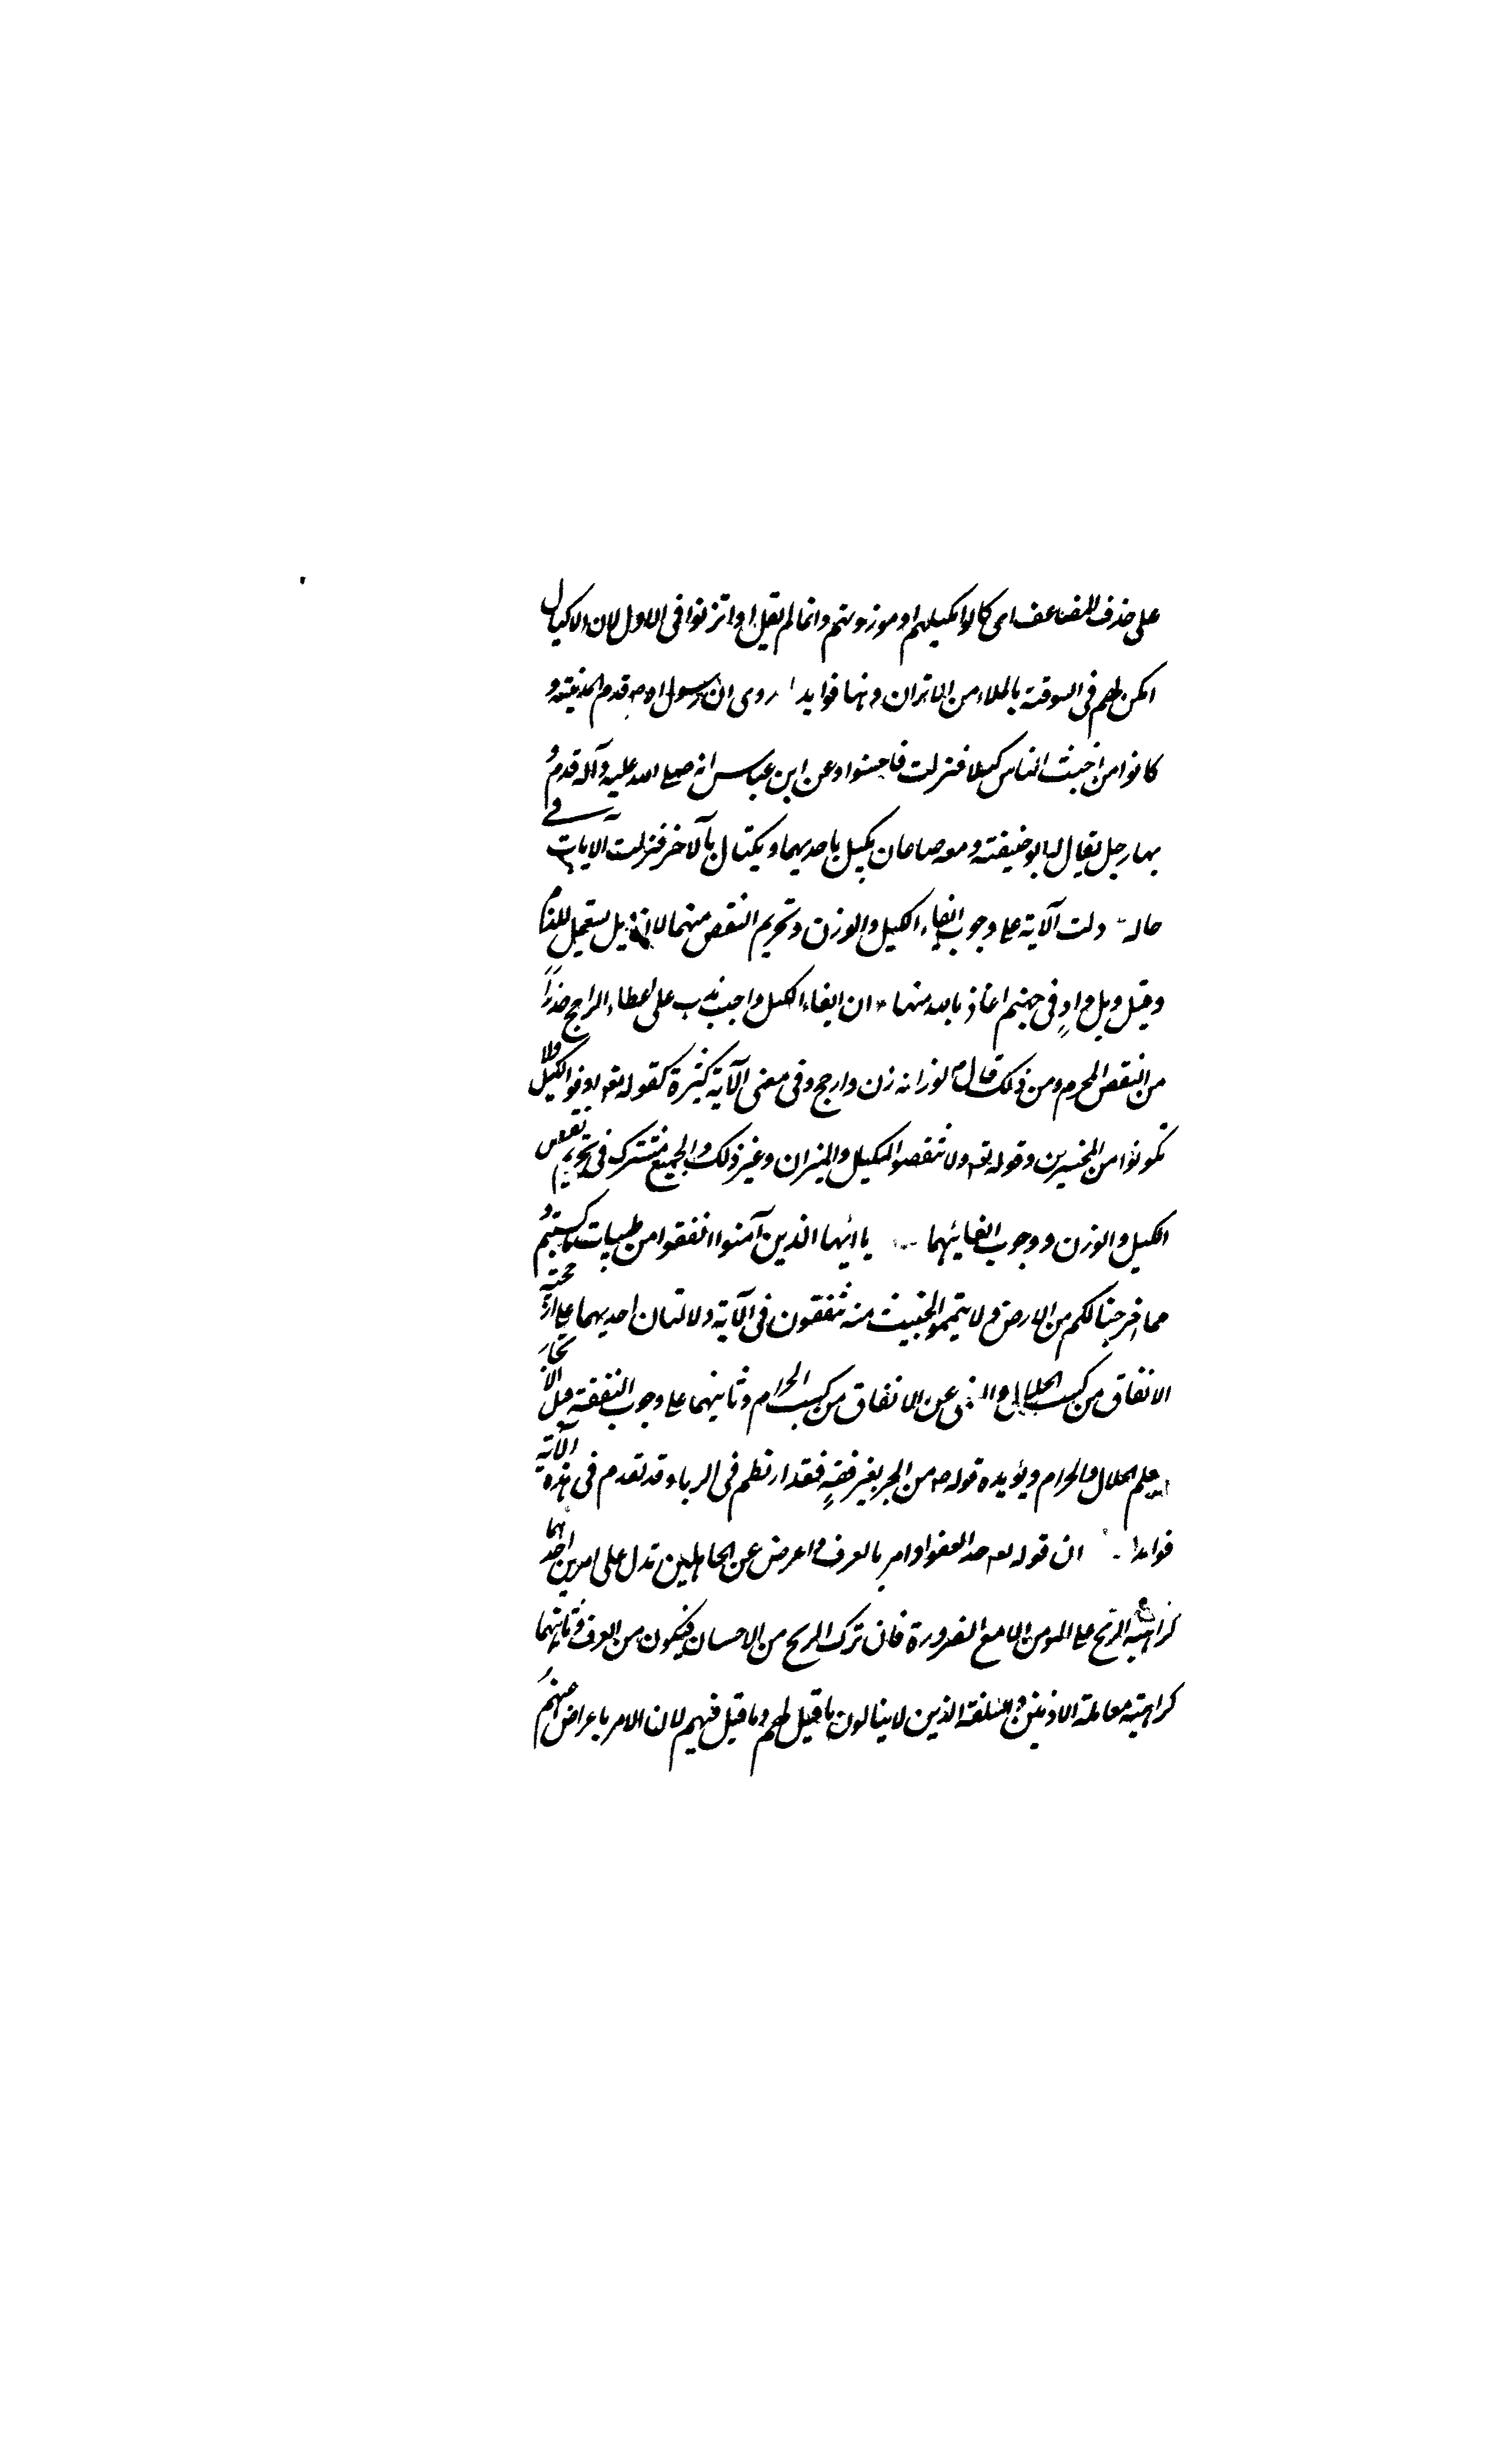 على حذف المضاف اى كالوا مكيلهم او موزونهم وانما لم يقل او اتزنوا فى الاول لان الاكتيال
امكن لهم فى السرقة بالملاء من الاتزان وفيها فوايد ا روى ان رسول الله ص قدم المدينة و
كانوا من اخبث الناس كيلا فنزلت فاحسنوا وعن ابن عباس انه صلى الله عليه وآله قدم و
بها رجل يقال له ابو جهينة ومعه صاعان يكيل باحديهما ويكتال بالآخر فنزلت الايات فى
حاله دلت الآية على وجوب ايفاء الكيل والوزن وتحريم النقص منهما لان ويل يستعمل للذم
وقيل ويل وادٍ فى جهنم اعاذنا بالله منها ان ايفاء الكيل واجب ندب على اعطاء الراجح حذرًا
من النقص المحرم ومن ذلك قال لوزانه زن وارجح وفى معنى الآية كثيرة كقوله تعه اوفوا الكيل ولا
تكونوا من المخسرين وقوله تعه ولا تنقصوا المكيل والميزان وغير ذلك والجميع مشترك فى تحريم نقص
الكيل والوزن ووجوب ايفائهما يا ايها الذين آمنوا انفقوا من طيبات ما كسبتم و
مما اخرجنا لكم من الارض ولا تيمموا الخبيث منه تنفقون فى الآية دلالتان احديهما على ارجحية
الانفاق من كسب الحلال والنهى عن الانفاق من كسب الحرام وثانيهما على وجوب التفقه قبل الاتجار
ليعلم الحلال والحرام ويؤيده قوله ص من اتجر بغير فقهٍ فقد ارتطم فى الرباء وقد تقدم فى هذه الآية
فوايد ان قوله تعه خذ العفو وامر بالعرف واعرض عن الجاهلين تدل على امرين احدهما
كراهية الربح على المومن الا مع الضرورة فان ترك الربح من الاحسان فيكون من العرف وثانيهما
كراهية معاملة الادنين والسفلة الذين لا يبالون بما قيل لهم وما قيل فيهم لان الامر باعراض عنهم